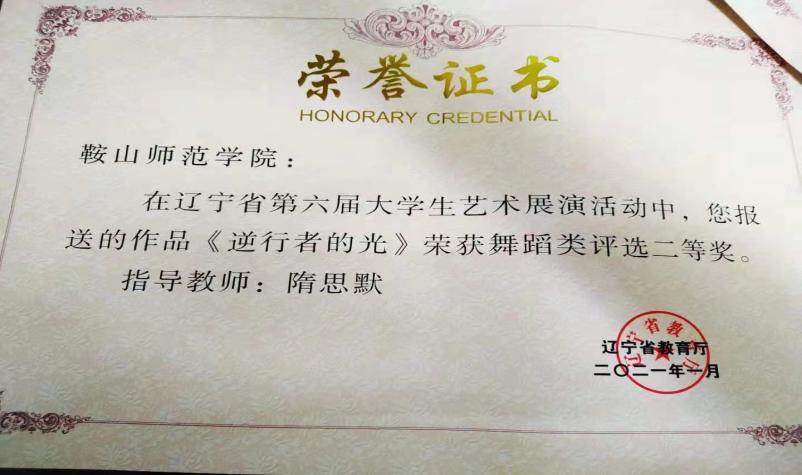 荣誉证书
HONORARY CREDENTIAL
鞍山师范学院：
在辽宁省第六届大学生艺术展演活动中，您报
送的作品《逆行者的光》荣获舞蹈类评选二等奖。
指导教师：隋思默
辽宁省教育厅
辽宁省教育厅
二〇二一年一月